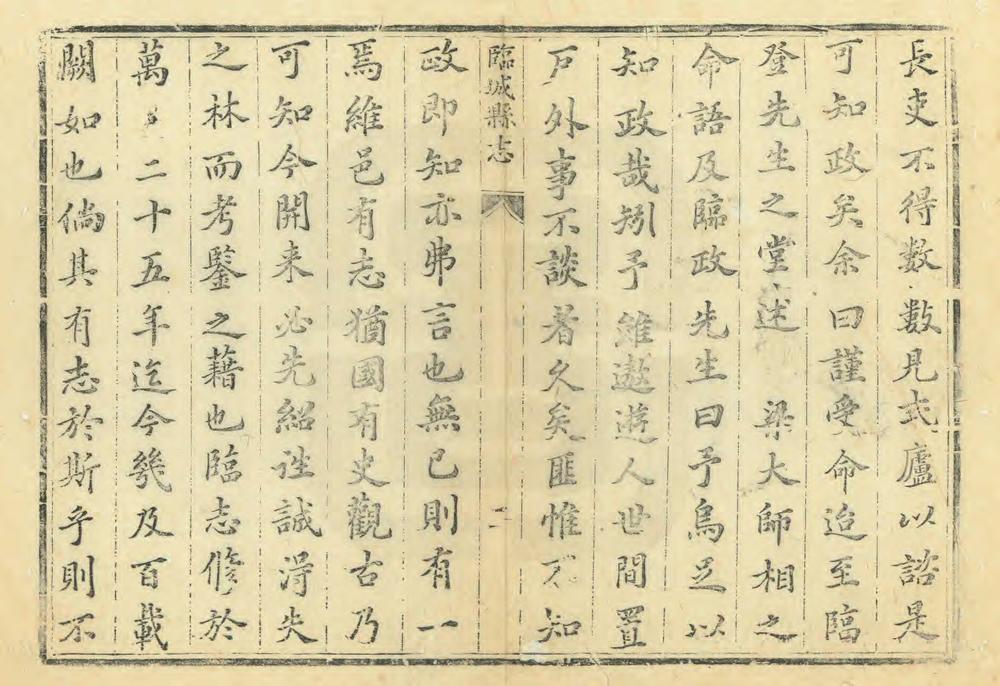 長吏不得數數見式廬以諮是
可知政矣余曰謹受命迨至臨
登先生之堂述　梁大師相之
命語及臨政先生曰予烏足以
知政哉矧予雖遨遊人世間置
戶外事不談者久矣匪惟不知
臨城縣志　二
政即知亦弗言也無已則有一
焉維邑有志猶國有史觀古乃
可知今開來必先紹往誠得失
之林而考鑒之藉也臨志修於
萬　二十五年迄今幾及百載
闕如也倘其有志於斯乎則不